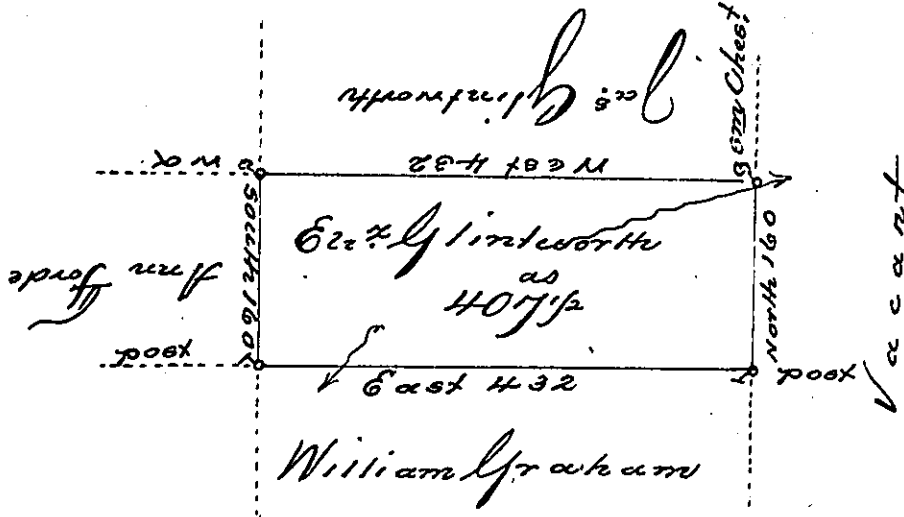 Jas. Glintworth
Chest.
West 432
W O
South 160
Ann Forde
Eliz. Glintworth
as
407
North 160
Vacant
post
East 432
post
William Graham